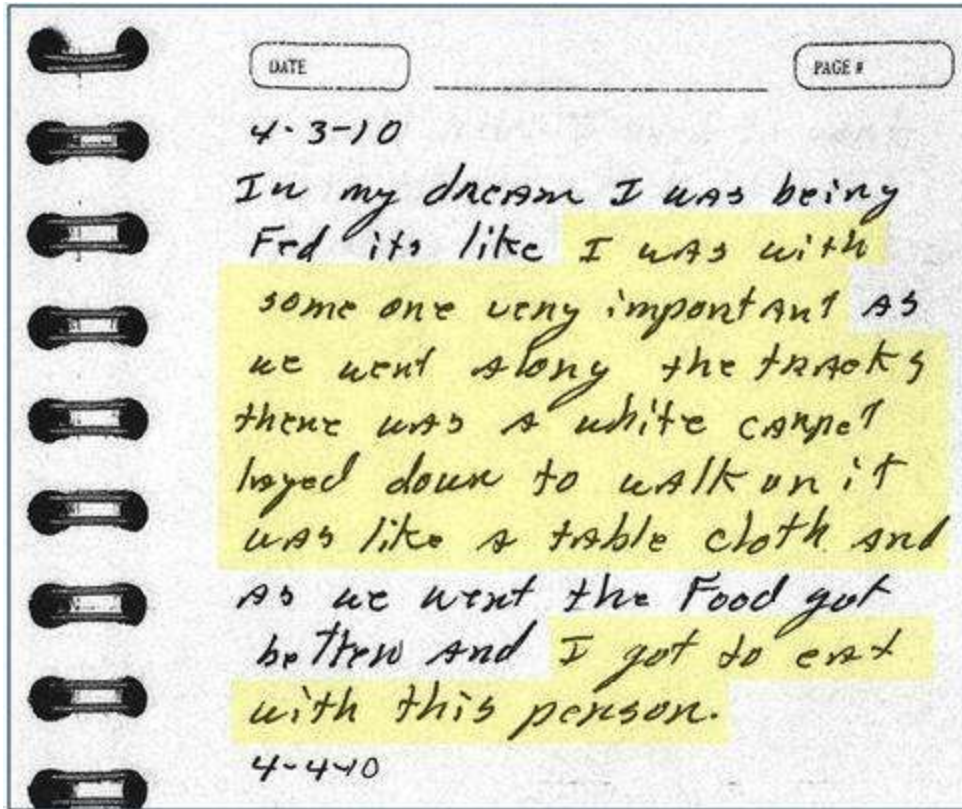 DATE PAGE #
4-3-10
In my dream I was being
Fed its like I was with
some one very important as
we went along the tracks
there was a white carpet
layed down to walk on it
was like a table cloth and
as we went the Food got
better and I got to eat
with this person.
4-4-10